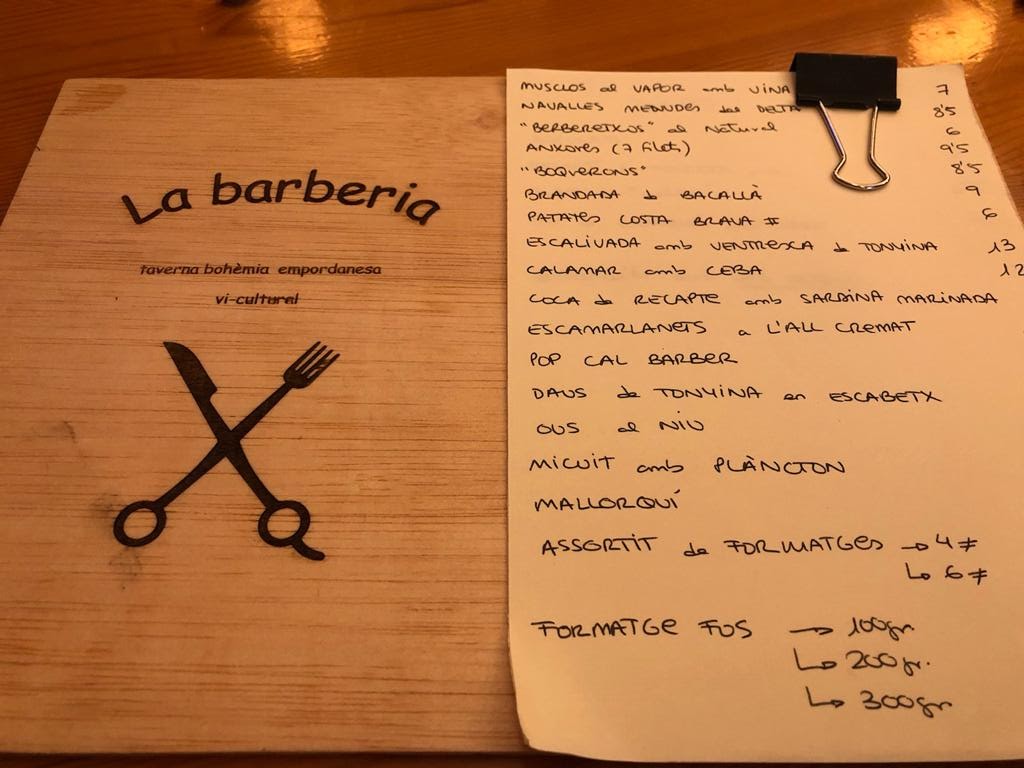 La barberia
taverna bohèmia empordanesa
vi-cultural
MUSCLOS al VAPOR amb VINA 7
NAVALLES MENUDES del DELTA 8'5
"BERBERETXOS" al Natural 6
ANXOVES (7 filets) 9'5
"BOQUERONS" 8'5
BRANDADA de BACALLÀ 9
PATATES COSTA BRAVA # 6
ESCALIVADA amb VENTRESCA de TONYINA 13
CALAMAR amb CEBA 12
COCA de RECAPTE amb SARDINA MARINADA
ESCAMARLANETS a L'ALL CREMAT
POP CAL BARBER
DAUS de TONYINA en ESCABETX
OUS al NIU
MICUIT amb PLÀNCTON
MALLORQUÍ
ASSORTIT de FORMATGES → 4 ≠
↳ 6 ≠
FORMATGE FOS → 100gr.
↳ 200gr.
↳ 300gr